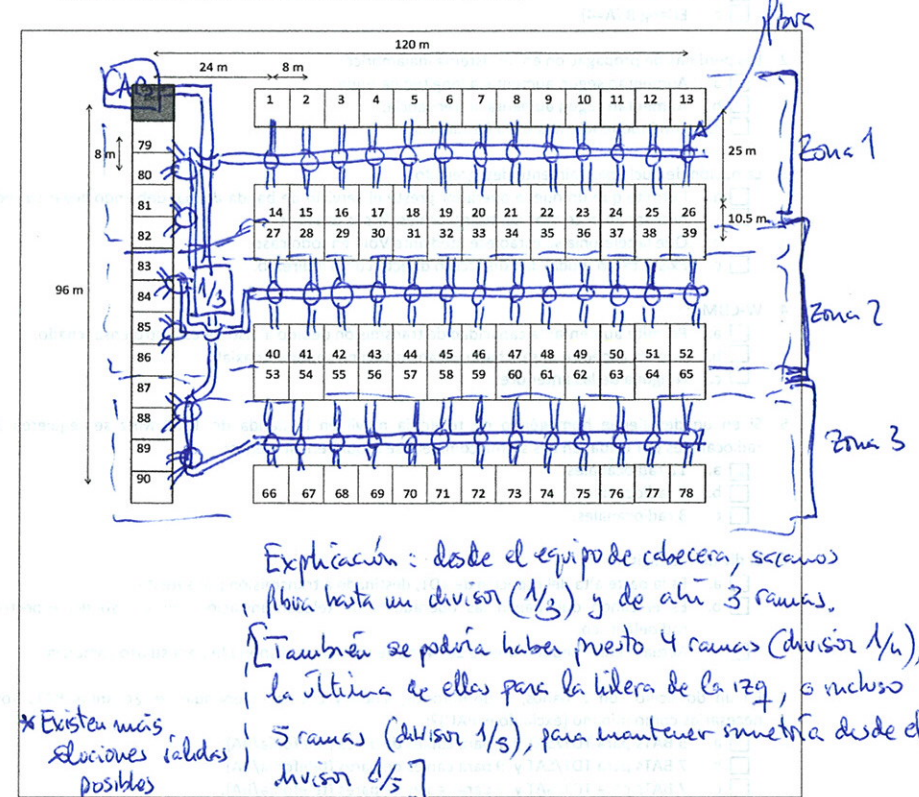 fibra
120 m
CAB.
24 m
8 m
1 2 3 4 5 6 7 8 9 10 11 12 13
79
8 m
80
25 m
Zona 1
81
82
14 15 16 17 18 19 20 21 22 23 24 25 26
10.5 m
27 28 29 30 31 32 33 34 35 36 37 38 39
83
96 m
84
1/3
85
Zona 2
86
40 41 42 43 44 45 46 47 48 49 50 51 52
87
53 54 55 56 57 58 59 60 61 62 63 64 65
88
89
Zona 3
90
66 67 68 69 70 71 72 73 74 75 76 77 78
Explicación: desde el equipo de cabecera, sacamos
fibra hasta un divisor (1/3) y de ahí 3 ramas.
[También se podría haber puesto 4 ramas (divisor 1/4),
la última de ellas para la hilera de la izq, o incluso
5 ramas (divisor 1/5), para mantener simetría desde el
divisor 1/5]
* Existen más
soluciones válidas
posibles